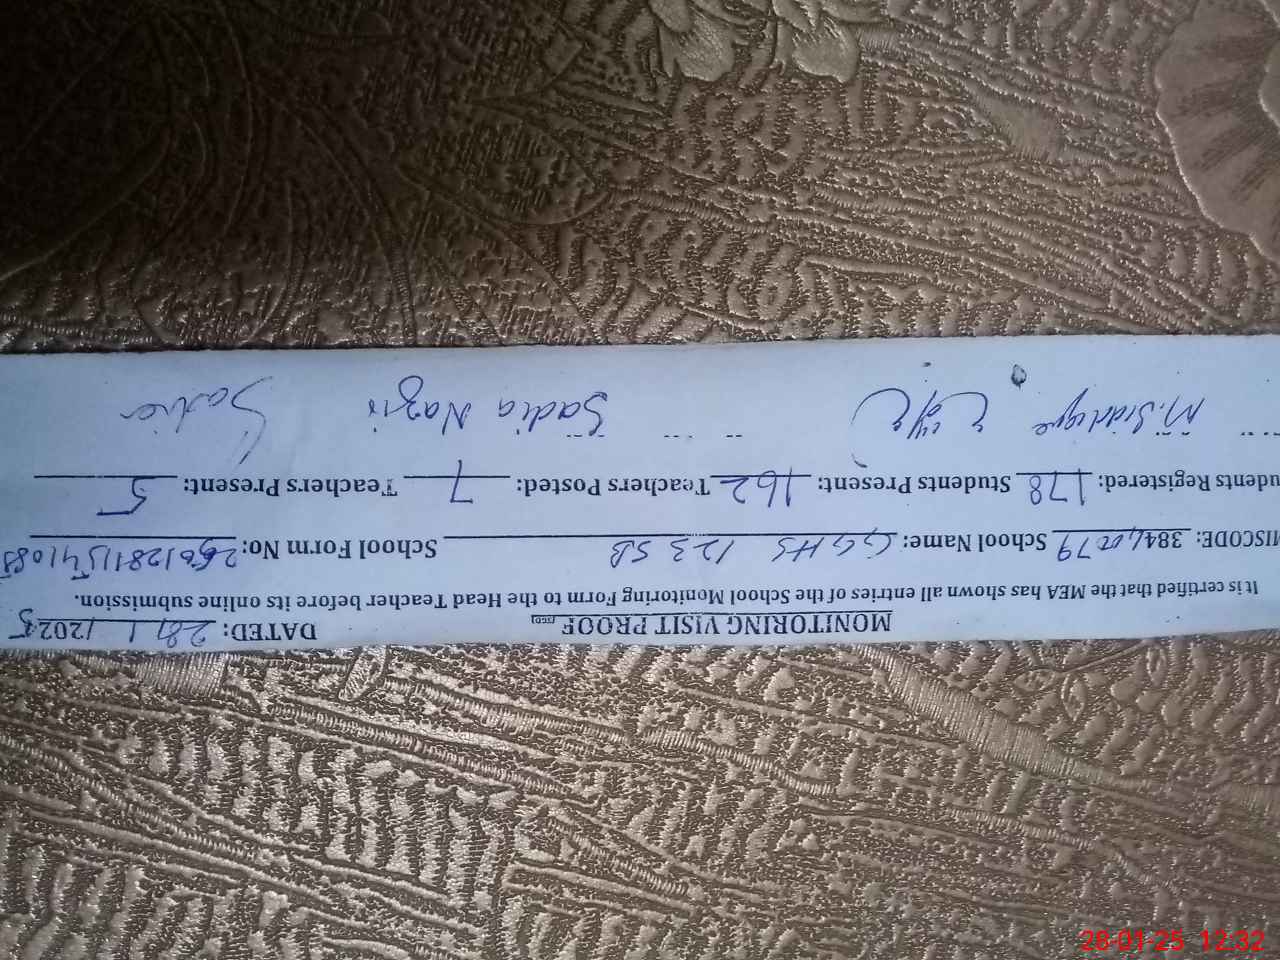 MONITORING VISIT PROOF DATED: 28/1/2025
It is certified that the MEA has shown all entries of the School Monitoring Form to the Head Teacher before its online submission.
MISCODE: 38440079 School Name: GGHS 123 SB School Form No:
udents Registered: 178 Students Present: 162 Teachers Posted: 7 Teachers Present: 5
M. Siddique Sadia Nazir Sadia
28-01-25 12:32